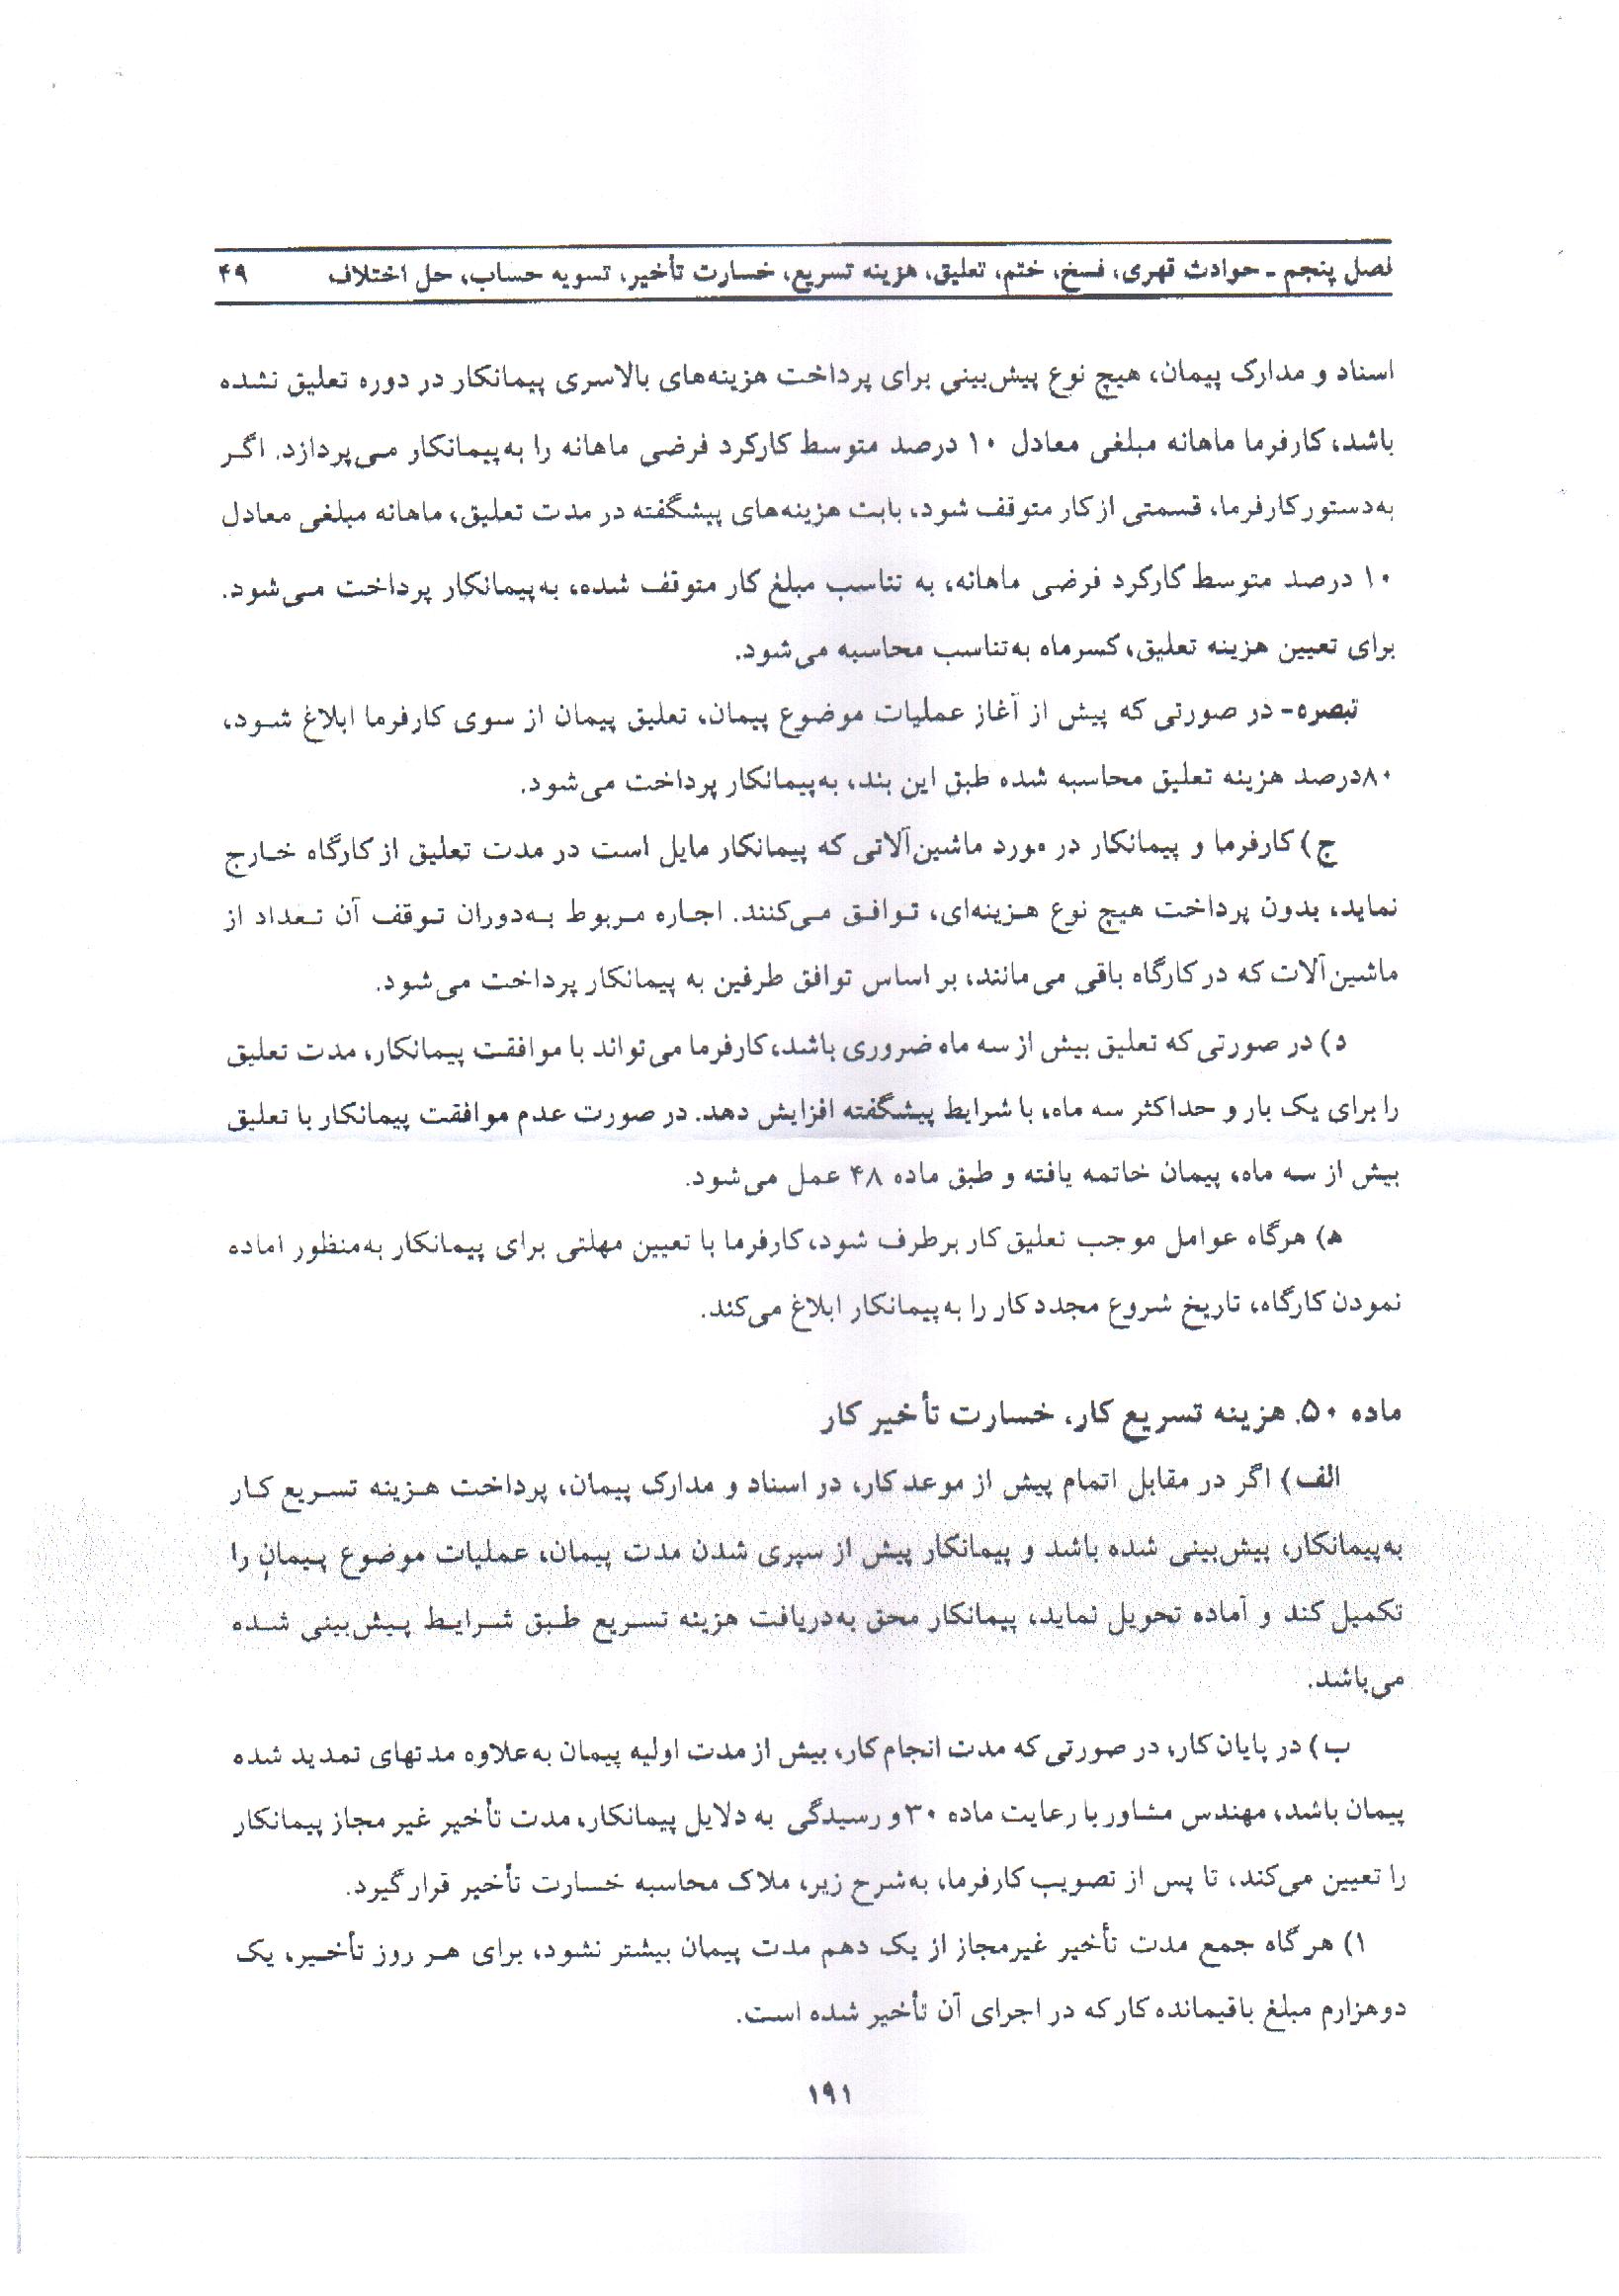 فصل پنجم ـ حوادث قهری، فسخ، ختم، تعلیق، هزینه تسریع، خسارت تأخیر، تسویه حساب، حل اختلاف ۴۹
اسناد و مدارک پیمان، هیچ نوع پیش‌بینی برای پرداخت هزینه‌های بالاسری پیمانکار در دوره تعلیق نشده
باشد، کارفرما ماهانه مبلغی معادل ۱۰ درصد متوسط کارکرد فرضی ماهانه را به‌پیمانکار می‌پردازد. اگر
به‌دستور کارفرما، قسمتی از کار متوقف شود، بابت هزینه‌های پیشگفته در مدت تعلیق، ماهانه مبلغی معادل
۱۰ درصد متوسط کارکرد فرضی ماهانه، به تناسب مبلغ کار متوقف شده، به‌پیمانکار پرداخت می‌شود.
برای تعیین هزینه تعلیق، کسرماه به‌تناسب محاسبه می‌شود.
تبصره- در صورتی که پیش از آغاز عملیات موضوع پیمان، تعلیق پیمان از سوی کارفرما ابلاغ شود،
۸۰درصد هزینه تعلیق محاسبه شده طبق این بند، به‌پیمانکار پرداخت می‌شود.
ج) کارفرما و پیمانکار در مورد ماشین‌آلاتی که پیمانکار مایل است در مدت تعلیق از کارگاه خارج
نماید، بدون پرداخت هیچ نوع هزینه‌ای، توافق می‌کنند. اجاره مربوط به‌دوران توقف آن تعداد از
ماشین‌آلات که در کارگاه باقی می‌مانند، بر اساس توافق طرفین به پیمانکار پرداخت می‌شود.
د) در صورتی که تعلیق بیش از سه ماه ضروری باشد، کارفرما می‌تواند با موافقت پیمانکار، مدت تعلیق
را برای یک بار و حداکثر سه ماه، با شرایط پیشگفته افزایش دهد. در صورت عدم موافقت پیمانکار با تعلیق
بیش از سه ماه، پیمان خاتمه یافته و طبق ماده ۴۸ عمل می‌شود.
ه) هرگاه عوامل موجب تعلیق کار برطرف شود، کارفرما با تعیین مهلتی برای پیمانکار به‌منظور اماده
نمودن کارگاه، تاریخ شروع مجدد کار را به‌پیمانکار ابلاغ می‌کند.
ماده ۵۰. هزینه تسریع کار، خسارت تأخیر کار
الف) اگر در مقابل اتمام پیش از موعد کار، در اسناد و مدارک پیمان، پرداخت هزینه تسریع کار
به‌پیمانکار، پیش‌بینی شده باشد و پیمانکار پیش از سپری شدن مدت پیمان، عملیات موضوع پیمان را
تکمیل کند و آماده تحویل نماید، پیمانکار محق به‌دریافت هزینه تسریع طبق شرایط پیش‌بینی شده
می‌باشد.
ب) در پایان کار، در صورتی که مدت انجام کار، بیش از مدت اولیه پیمان به‌علاوه مدتهای تمدید شده
پیمان باشد، مهندس مشاور با رعایت ماده ۳۰ و رسیدگی به دلایل پیمانکار، مدت تأخیر غیر مجاز پیمانکار
را تعیین می‌کند، تا پس از تصویب کارفرما، به‌شرح زیر، ملاک محاسبه خسارت تأخیر قرار گیرد.
۱) هرگاه جمع مدت تأخیر غیرمجاز از یک دهم مدت پیمان بیشتر نشود، برای هر روز تأخیر، یک
دوهزارم مبلغ باقیمانده کار که در اجرای آن تأخیر شده است.
۱۹۱